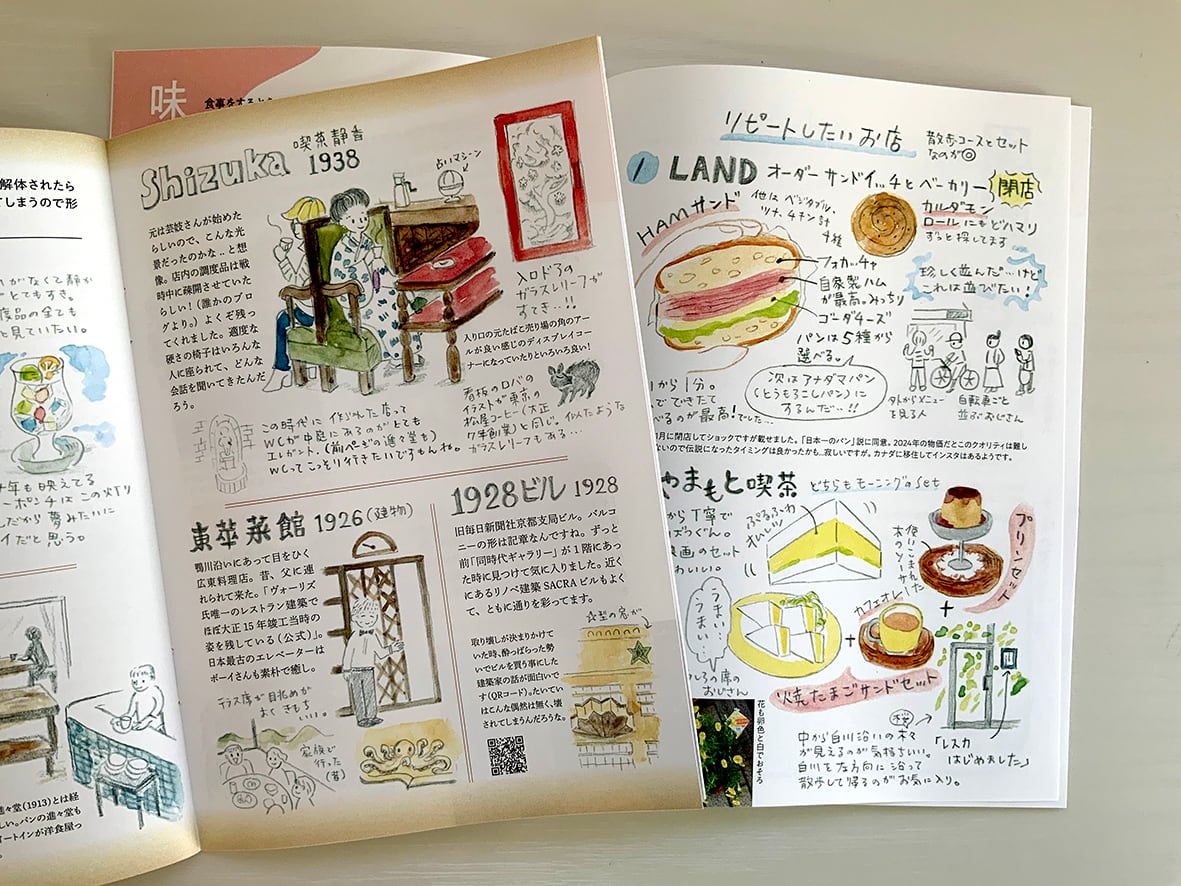 味
解体されたら
てしまうので形
のがなくて静か
とてもすき。
と見ていたい。
も映えてる
ポンチはこの灯り
だから夢みたいに
イだと思う。
進々堂(1913)とは経
しい。パンの進々堂も
ートインが洋食屋っ
Shizuka
喫茶静香
1938
占いマシーン
元は芸妓さんが始めた
らしいので、こんな光
景だったのかな‥と想
像。店内の調度品は戦
時中に疎開させていた
らしい!(誰かのブロ
グより。)よくぞ残っ
てくれました。適度な
硬さの椅子はいろんな
人に座られて、どんな
会話を聞いてきたんだ
ろう。
入口ドアの
ガラスレリーフが
すてき…!!
入り口の元たばこ売り場の角のアー
ルが良い感じのディスプレイコー
ナーになっていたりといろいろ良い!
この時代に作られた店って
WCが中庭にあるのがとても
エレガント。(前ページの進々堂も)
WCってこっそり行きたいですもんね。
看板のロバの
イラストが東京の
松屋コーヒー(大正
7年創業)と同じ。
似たような
ガラスレリーフもある…
東華菜館 1926(建物)
鴨川沿いにあって目をひく
広東料理店。昔、父に連
れられて来た。「ヴォーリズ
氏唯一のレストラン建築で
ほぼ大正15年竣工当時の
姿を残している(公式)」。
日本最古のエレベーターは
ボーイさんも素朴で癒し。
テラス席が目眺めが
よくきもち
いい。
家族で
行った
(昔)
1928ビル 1928
旧毎日新聞社京都支局ビル。バルコ
ニーの形は記章なんですね。ずっと
前「同時代ギャラリー」が1階にあっ
た時に見つけて気に入りました。近く
にあるリノベ建築SACRAビルもよく
て、ともに通りを彩ってます。
☆型の窓が
取り壊しが決まりかけて
いた時、酔っぱらった勢
いでビルを買う事にした
建築家の話が面白いで
す(QRコード)。たいてい
はこんな偶然は無く、壊
されてしまうんだろうな。
リピートしたいお店
散歩コースとセット
なのが◎
1 LAND オーダーサンドイッチとベーカリー
閉店
HAMサンド
他はベジタブル、
ツナ、チキン計
4種
カルダモン
ロールにもどハマり
ずっと探してます
フォカッチャ
自家製ハム
が最高。みっちり
ゴーダチーズ
パンは5種から
選べる。
珍しく並んだ…けど
これは並びたい!
次はアナダマパン
(とうもろこしパン)に
するんだ…!!
から1分。
でできたて
べるのが最高!でした…
外からメニュー
を見る人
自転車ごと
並ぶおじさん
月に閉店してショックですが載せました。「日本一のパン」説に同意。2024年の物価だとこのクオリティは難し
ないので伝説になったタイミングは良かったかも…寂しいですが。カナダに移住してインスタはあるようです。
やまもと喫茶 どちらもモーニングのset
から丁寧で
ぷるふわ
オムレツ
使いこまれた
木のソーサー
プリンセット
うまい…
うまい…
カフェオレ
焼たまごサンドセット
おじさん
花も卵色と白でおそろ
桜
「レスカ
はじめました」
中から白川沿いの木々
が見えるのが気持ちいい。
白川を左方向に沿って
散歩して帰るのがお気に入り。